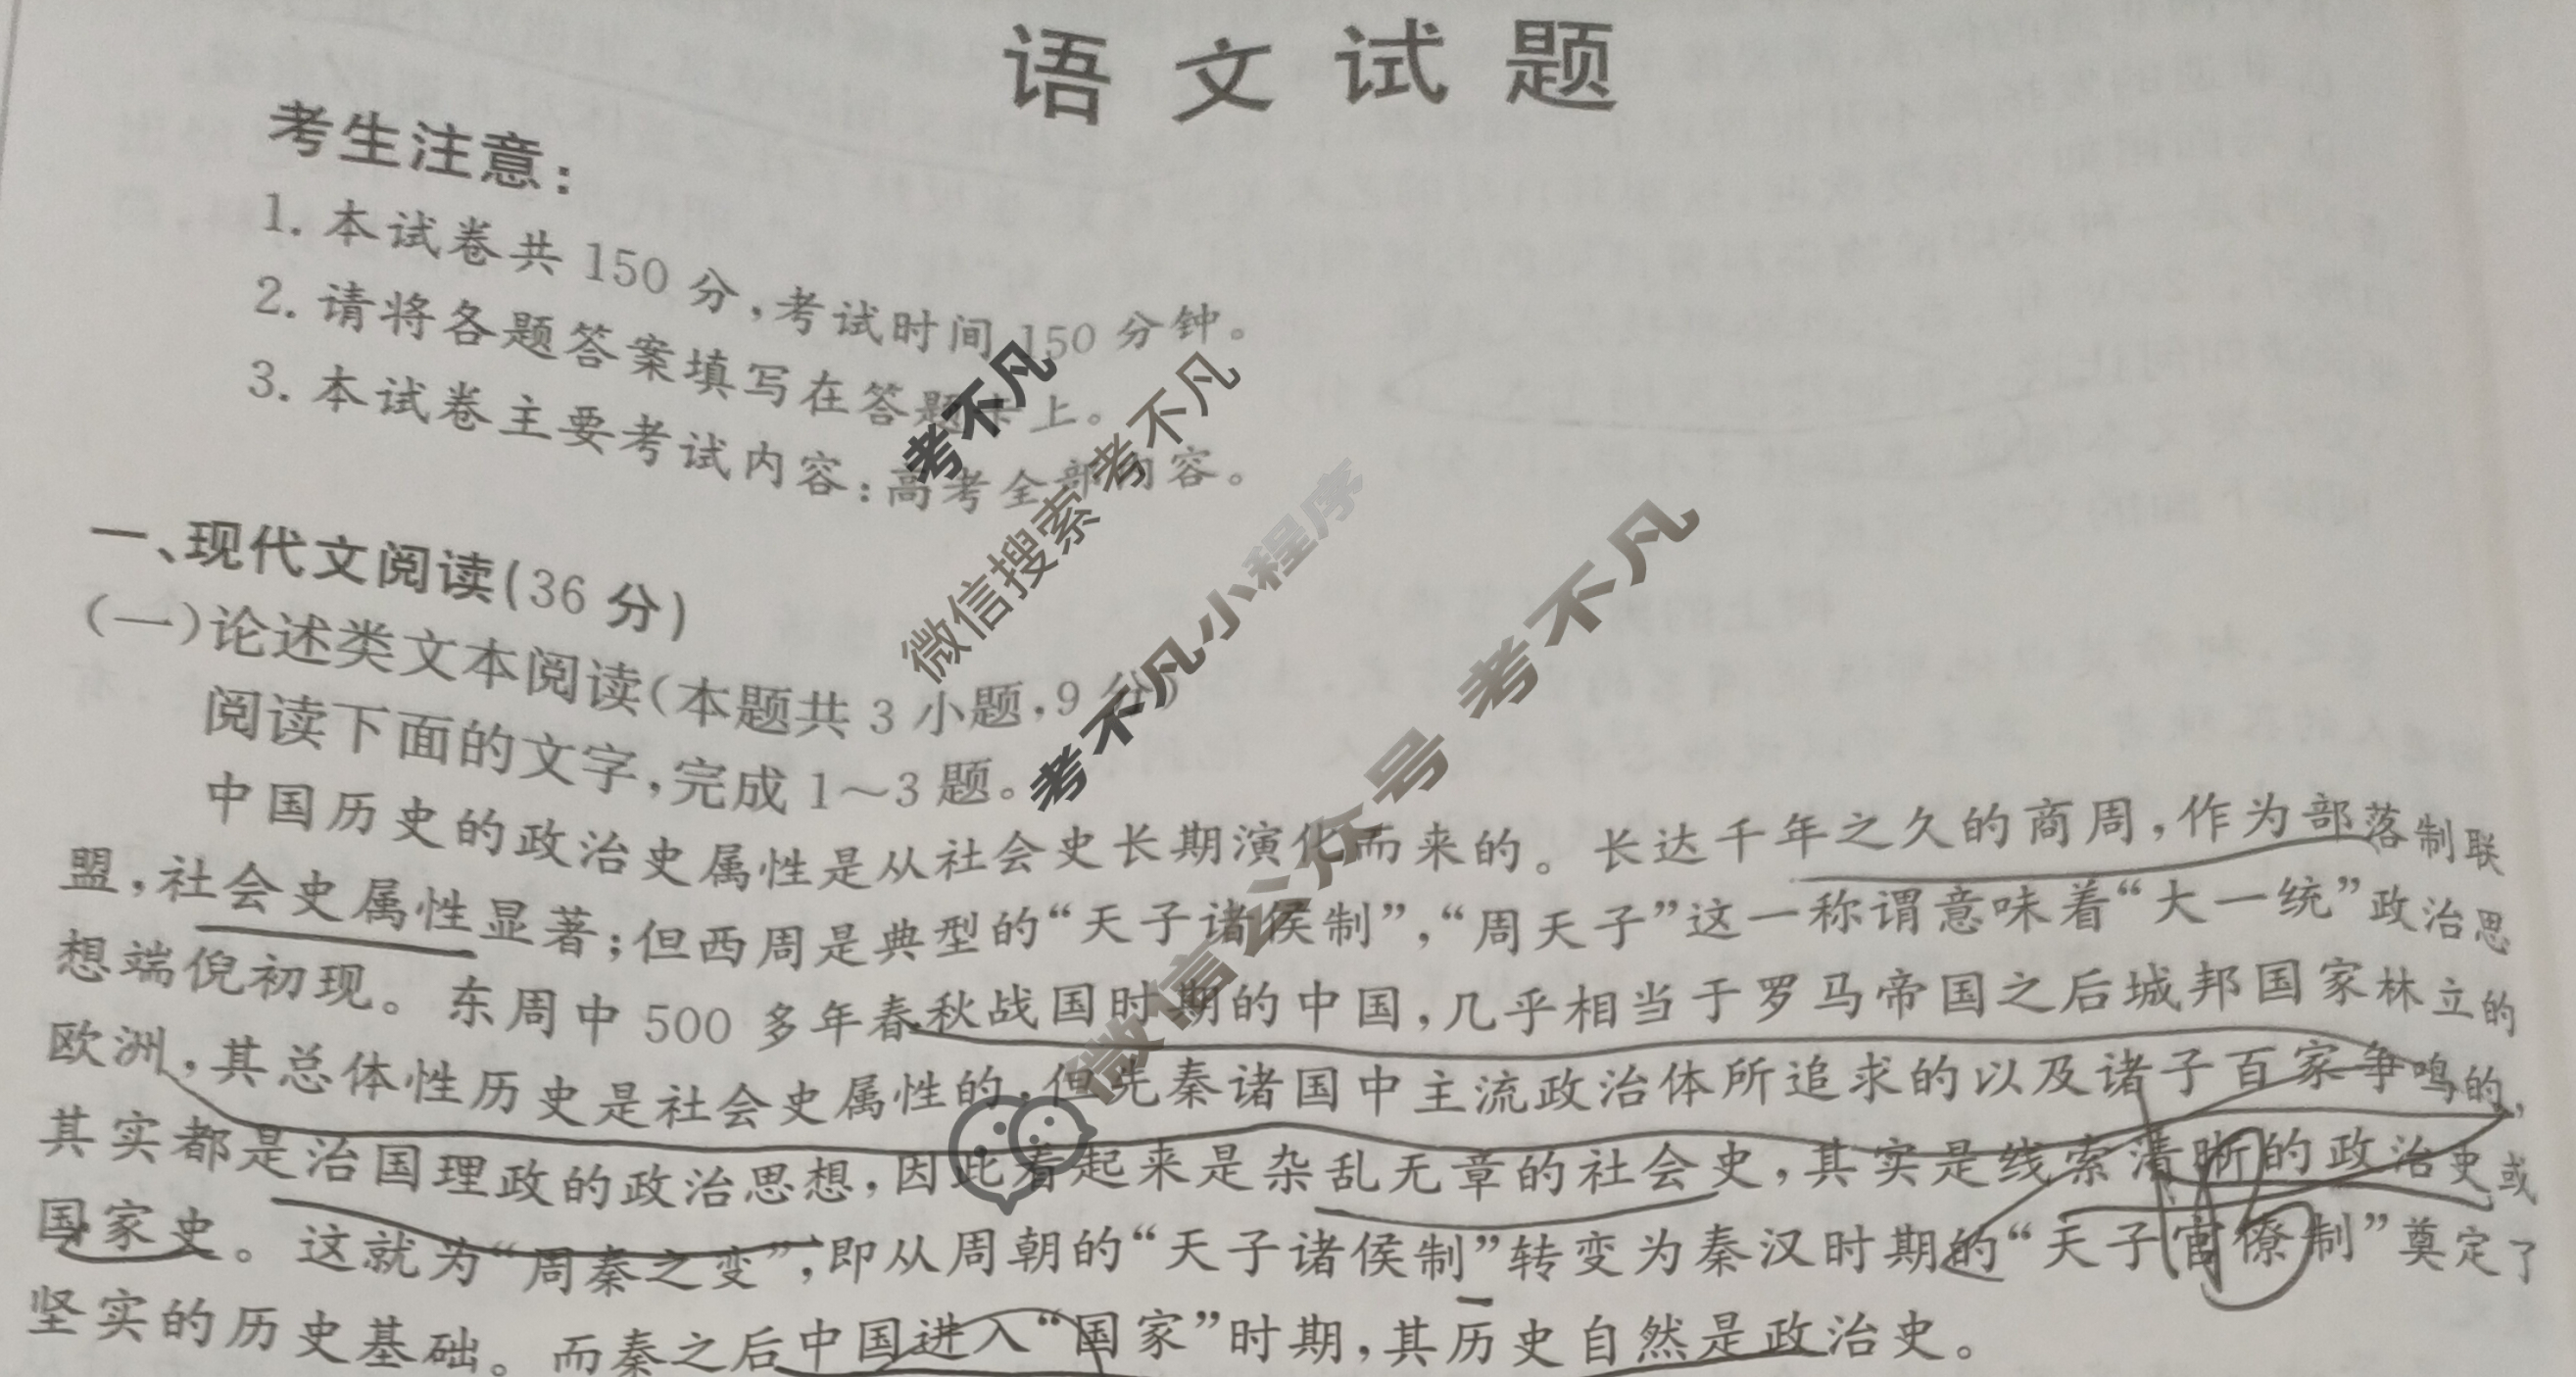 语文试题
考生注意：
1. 本试卷共 150 分，考试时间 150 分钟。
2. 请将各题答案填写在答题卡上。
3. 本试卷主要考试内容：高考全部内容。
一、现代文阅读(36 分)
(一)论述类文本阅读(本题共 3 小题，9 分)
阅读下面的文字，完成 1～3 题。
中国历史的政治史属性是从社会史长期演化而来的。长达千年之久的商周，作为部落制联
盟，社会史属性显著；但西周是典型的“天子诸侯制”，“周天子”这一称谓意味着“大一统”政治思
想端倪初现。东周中 500 多年春秋战国时期的中国，几乎相当于罗马帝国之后城邦国家林立的
欧洲，其总体性历史是社会史属性的，但先秦诸国中主流政治体所追求的以及诸子百家争鸣的，
其实都是治国理政的政治思想，因此看起来是杂乱无章的社会史，其实是线索清晰的政治史或
国家史。这就为“周秦之变”，即从周朝的“天子诸侯制”转变为秦汉时期的“天子官僚制”奠定了
坚实的历史基础。而秦之后中国进入“国家”时期，其历史自然是政治史。
考不凡
微信搜索 考不凡
考不凡小程序
微信公众号 考不凡